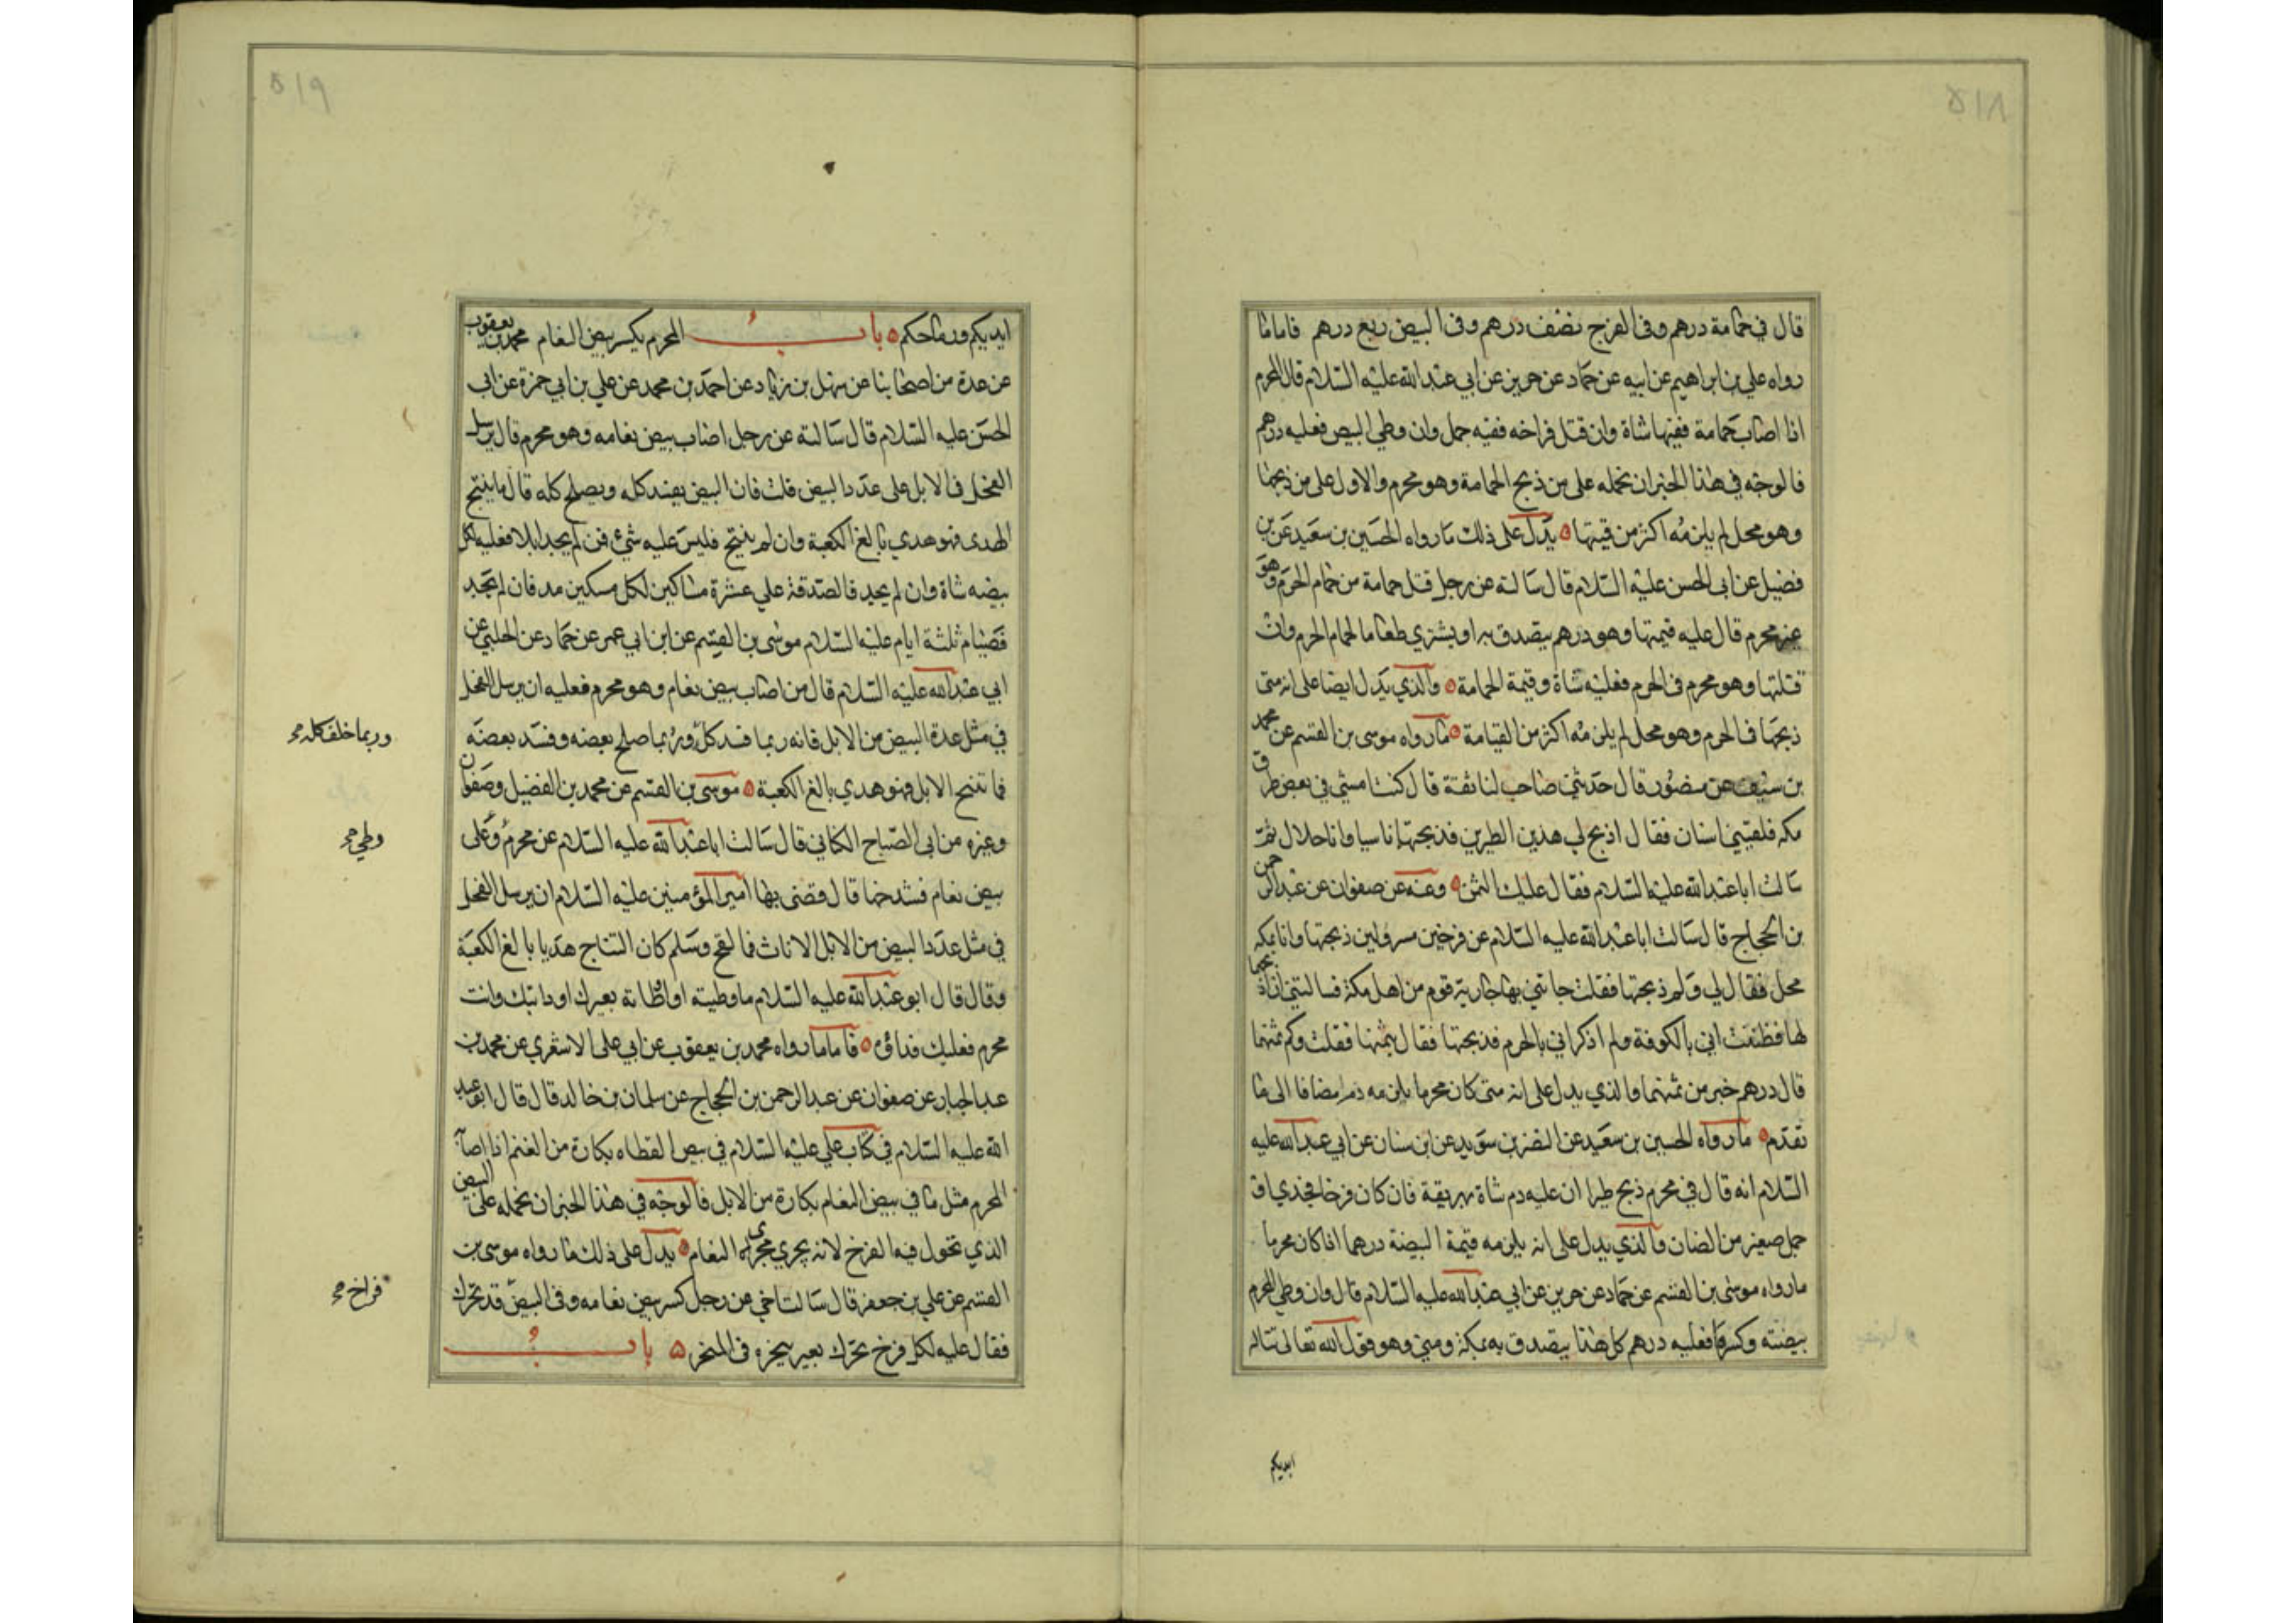 ٥١٨
قال في حمامة درهم وفي الفرخ نصف درهم وفي البيض ربع درهم فاما ما
رواه علي بن ابراهيم عن ابيه عن حماد عن حريز عن ابي عبد الله عليه السلام قال المحرم
اذا اصاب حمامة ففيها شاة وان قتل فراخه ففيه حمل وان وطي البيض فعليه درهم
فالوجه في هذا الخبر ان نحمله على من ذبح الحمامة وهو محرم والاول على من ذبحها
وهو محل لم يلزمه اكثر من قيمتها يدل على ذلك ما رواه الحسين بن سعيد عن بن
فضيل عن ابي الحسن عليه السلام قال سالته عن رجل قتل حمامة من حمام الحرم وهو
غير محرم قال عليه قيمتها وهو درهم يتصدق به او يشتري طعاما لحمام الحرم وان
قتلها وهو محرم في الحرم فعليه شاة وقيمة الحمامة والذي يدل ايضا على انه متى
ذبحها في الحرم وهو محل لم يلزمه اكثر من القيامة ما رواه موسى بن القسم عن محمد
بن سيف عن منصور قال حدثني صاحب لنا ثقة قال كنت امشي في بعض طرق
مكه فلقيني انسان فقال اذبح لي هذين الطيرين فذبحتها ناسيا وانا حلال ثم
سالت ابا عبد الله عليه السلام فقال عليك الثمن وعنه عن صفوان عن عبد الرحمن
بن الحجاج قال سالت ابا عبد الله عليه السلام عن فرخين مسرولين ذبحتها وانا بمكه
محل فقال لي ولم ذبحتها فقلت جاتني بها جارية قوم من اهل مكة فسالتني ان اذبحها
لها فظننت اني بالكوفة ولم اذكر اني بالحرم فذبحتها فقال بثمنها فقلت وكم ثمنهما
قال درهم خير من ثمنهما والذي يدل على انه متى كان محرما يلزمه دم مضافا الى ما
تقدم ما رواه الحسين بن سعيد عن النضر بن سويد عن ابن سنان عن ابي عبد الله عليه
السلام انه قال في محرم ذبح طيرا ان عليه دم شاة يهريقة فان كان فرخا فجدي او
حمل صغير من الضان والذي يدل على انه يلزمه قيمة البيضة درهما اذا كان محرما
ما رواه موسى بن القسم عن حماد عن حريز عن ابي عبد الله عليه السلام قال وان وطي المحرم
بيضته وكسرها فعليه درهم كل هذا يتصدق به بمكة ومنى وهو قول الله تعالى تناله
ايديكم
٥١٩
ايديكم ورماحكم باب المحرم يكسر بيض النعام محمد بن يعقوب
عن عدة من اصحابنا عن سهل بن زياد عن احمد بن محمد عن علي بن ابي حمزة عن ابي
الحسن عليه السلام قال سالته عن رجل اصاب بيض نعامه وهو محرم قال يرسل
الفحل في الابل على عدد البيض قلت فان البيض يفسد كله ويصلح كله قال ما ينتج
الهدى فهو هدي بالغ الكعبة وان لم ينتج فليس عليه شيء فمن لم يجد ابلا فعليه لكل
بيضه شاة وان لم يجد فالصدقة على عشرة مساكين لكل مسكين مد فان لم يجد
فصيام ثلثة ايام عليه السلام موسى بن القسم عن ابن ابي عمير عن حماد عن الحلبي عن
ابي عبد الله عليه السلام قال من اصاب بيض نعام وهو محرم فعليه ان يرسل الفحل
في مثل عدة البيض من الابل فانه ربما فسد كله وربما صلح بعضه وفسد بعضه
وربما خلف كله
فما تنتج الابل فهو هدي بالغ الكعبة موسى بن القسم عن محمد بن الفضيل وصفوان
وغيره عن ابى الصباح الكناني قال سالت ابا عبد الله عليه السلام عن محرم وعلى
وطي
بيض نعام فشدخها قال قضى بها امير المؤمنين عليه السلام ان يرسل الفحل
في مثل عدد البيض من الابل الاناث فما لقح وسلم كان النتاج هديا بالغ الكعبة
وقال قال ابو عبد الله عليه السلام ما وطيته او اطاته بعيرك او دابتك وانت
محرم فعليك فداؤه فاما ما رواه محمد بن يعقوب عن ابي على الاشعري عن محمد بن
عبد الجبار عن صفوان عن عبد الرحمن بن الحجاج عن سلمان بن خالد قال قال ابو عبد
الله عليه السلام في كتاب علي عليه السلام في بيض القطاه بكارة من الغنم اذا اصابه
المحرم مثل ما في بيض النعام بكارة من الابل فالوجه في هذا الخبر ان نحمله على البيض
الذي تحول فيه الفرخ لانه يجري مجرى النعام يدل على ذلك ما رواه موسى بن
القسم عن علي بن جعفر قال سالت اخي عن رجل كسر بيض نعامه وفي البيض قد تحرك
فراخ
فقال عليه لكل فرخ تحرك بعير ينحره في المنحر باب